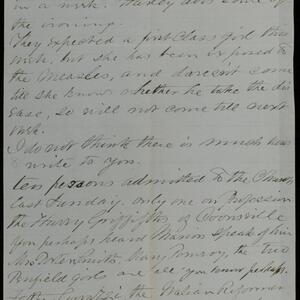 in a week. does some of
the ironing.
They expected a first class girl this
week, but she has been exposed to
the measles, and daren't come
till she knows whether he take the dis
ease, so will not come till next
week.
I do not think there is much news
to write to you.
ten persons admitted to the Church
last Sunday. only one on Profession
Harry Griffith, of Boonville
you perhaps heard Marion speak of him
Mrs Mary Pomroy, the two
Penfield Girls are all you know perhaps.
the Italian Reformer